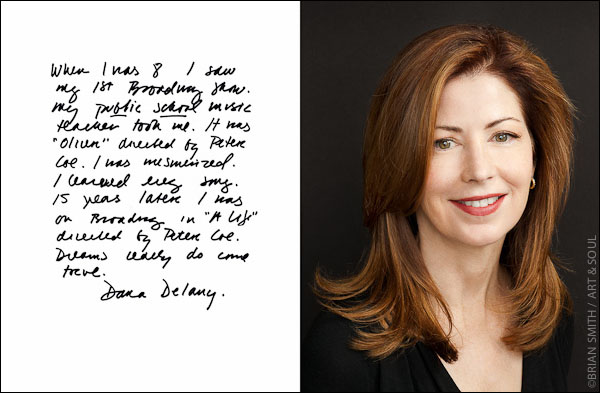 When I was 8 I saw
my 1st Broadway show.
My public school music
teacher took me. It was
"Oliver" directed by Peter
Coe. I was mesmerized.
I learned every song.
15 years later I was
on Broadway in "A Life"
directed by Peter Coe.
Dreams really do come
true.
Dana Delany.
©BRIAN SMITH / ART & SOUL